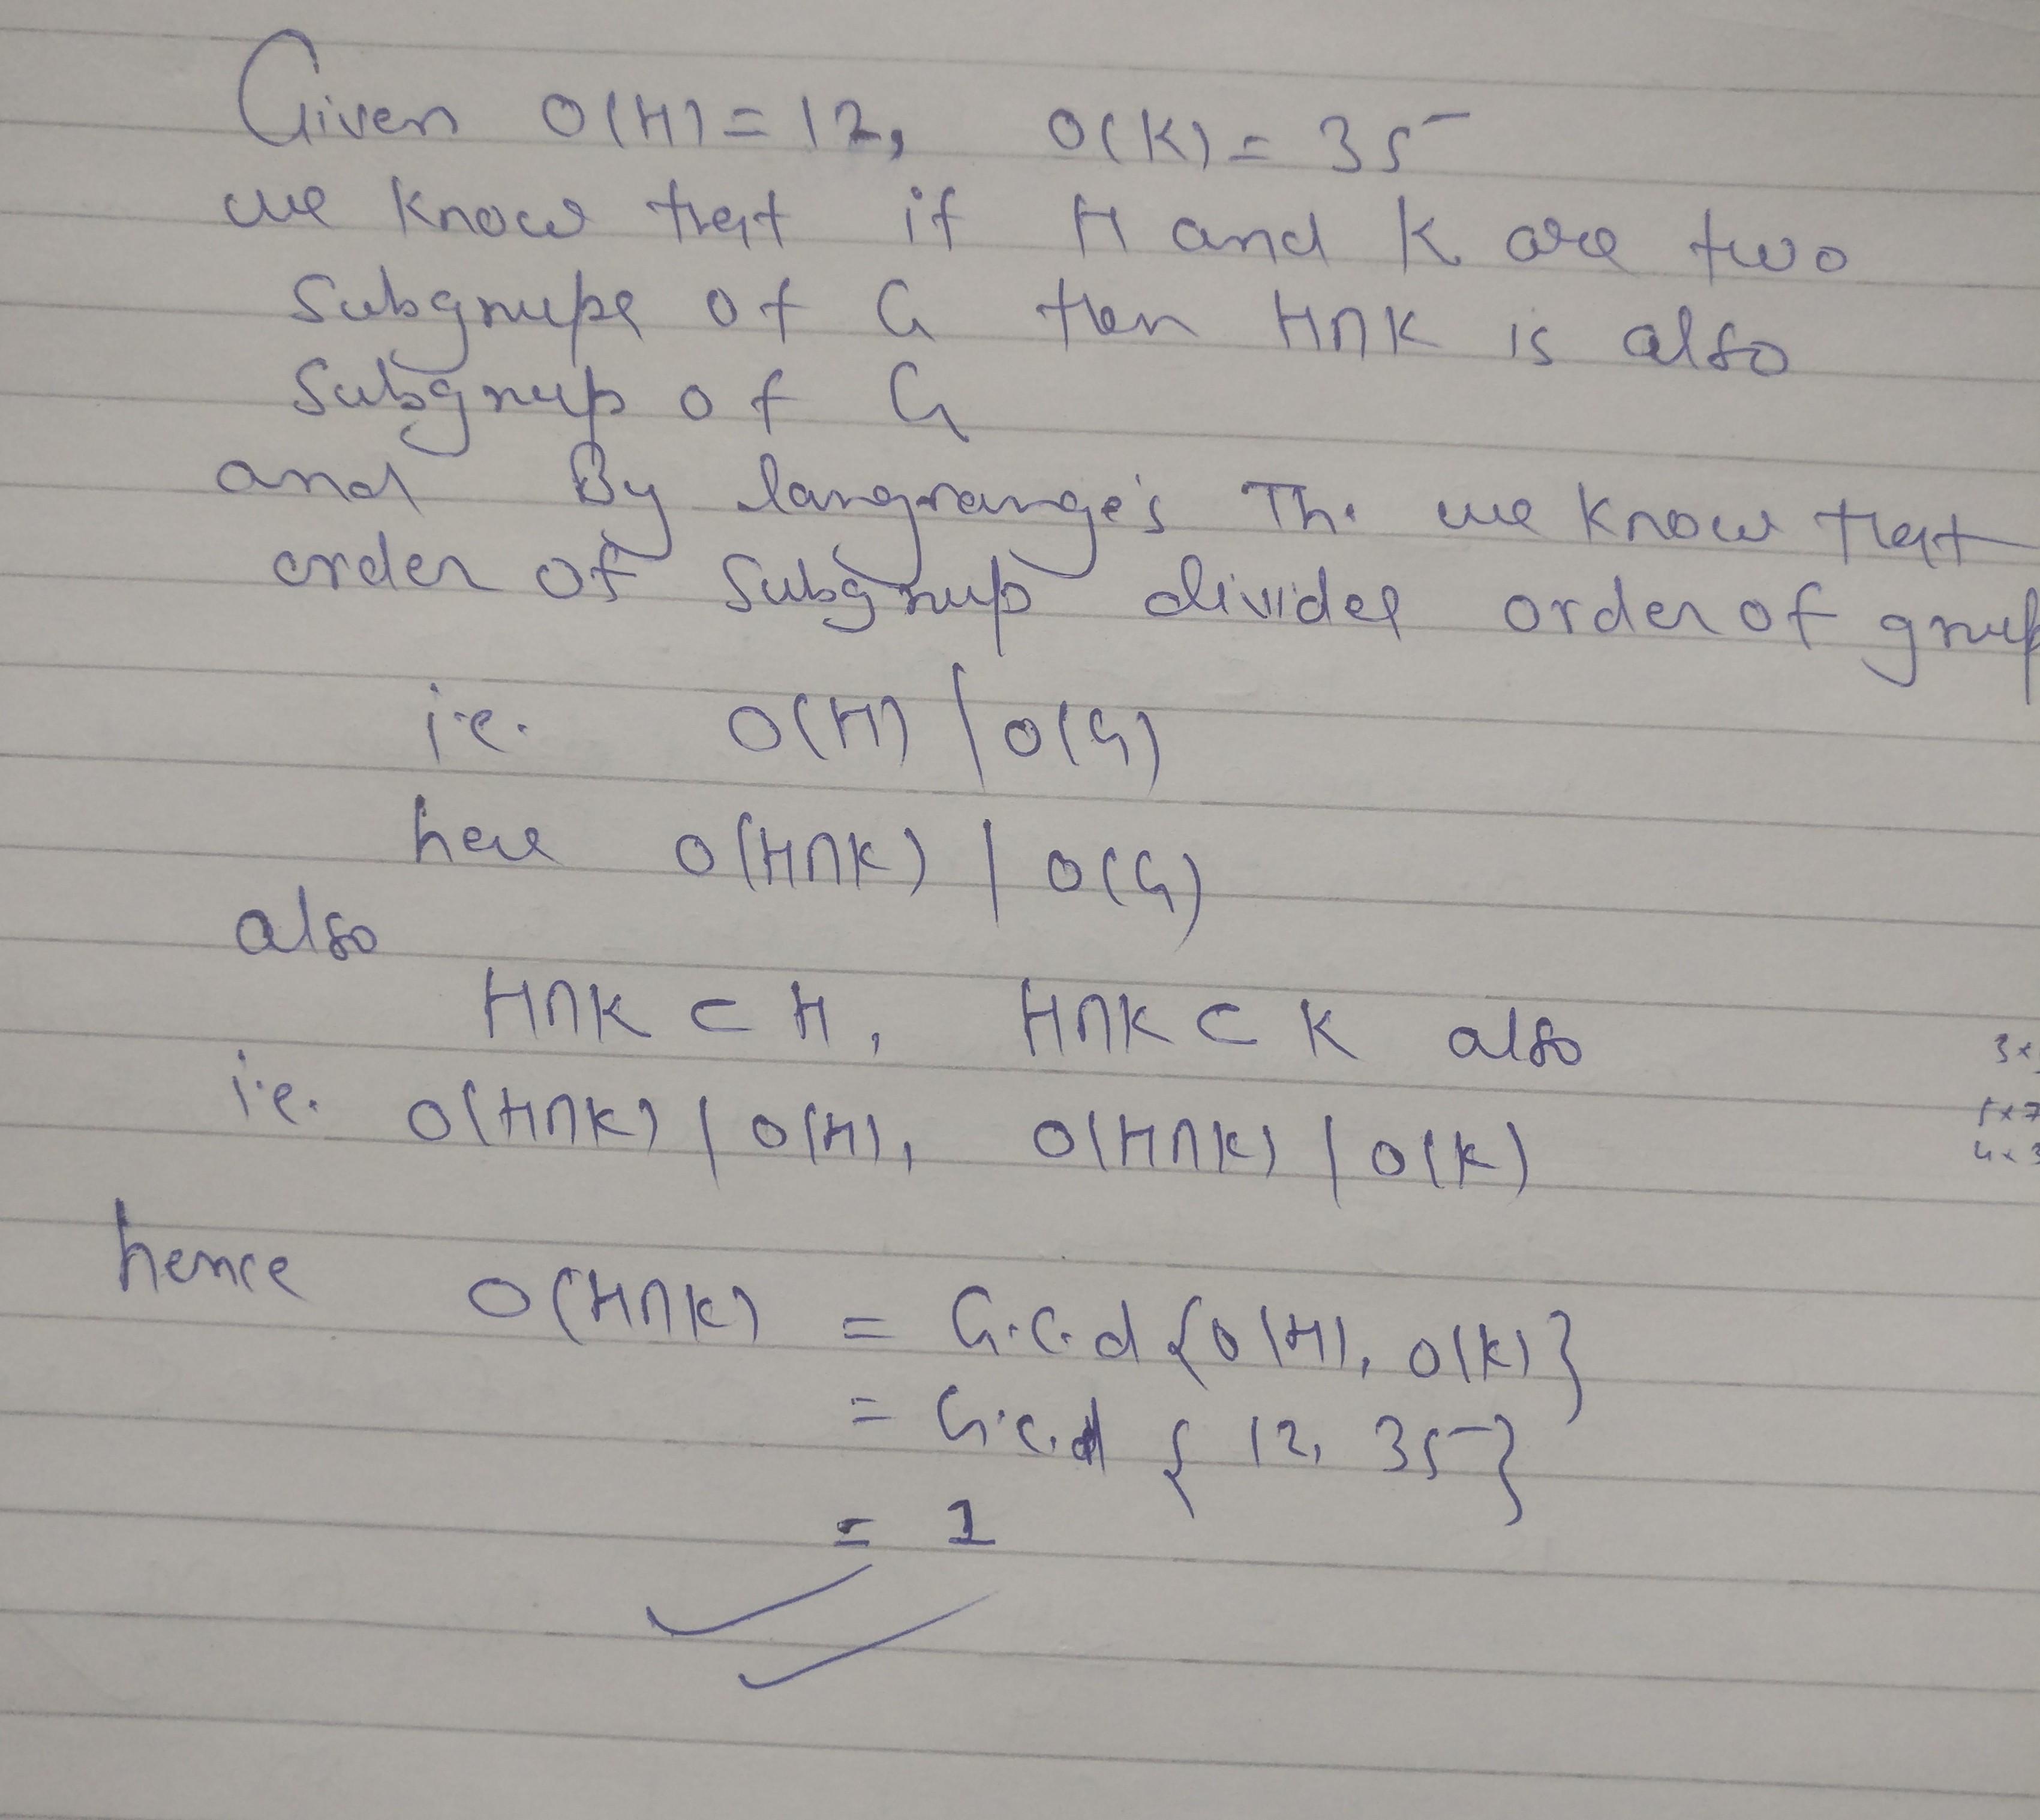 Given O(H) = 12, O(K) = 35
we know that if H and K are two
Subgroups of G then H∩K is also
Subgroup of G
and By langrange's Th. we know that
order of Subgroup divides order of group
i.e. O(H) / O(G)
here O(H∩K) / O(G)
also
H∩K ⊂ H, H∩K ⊂ K also
i.e. O(H∩K) / O(H), O(H∩K) / O(K)
hence O(H∩K) = G.C.d {O(H), O(K)}
= G.C.d { 12, 35}
= 1